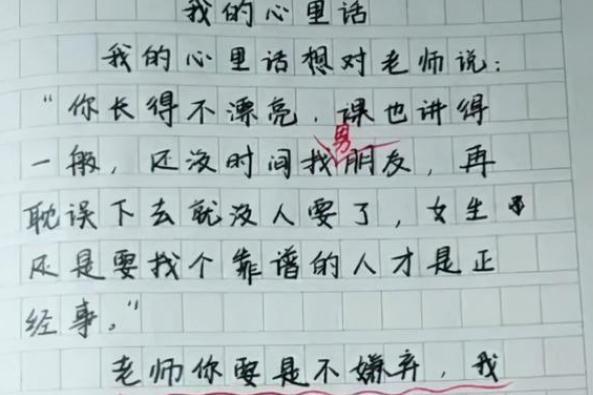 我的心里话
我的心里话想对老师说:
“你长得不漂亮,课也讲得
男
一般,还没时间找朋友,再
耽误下去就没人要了,女生
还是要找个靠谱的人才是正
经事。”
老师你要是不嫌弃,我